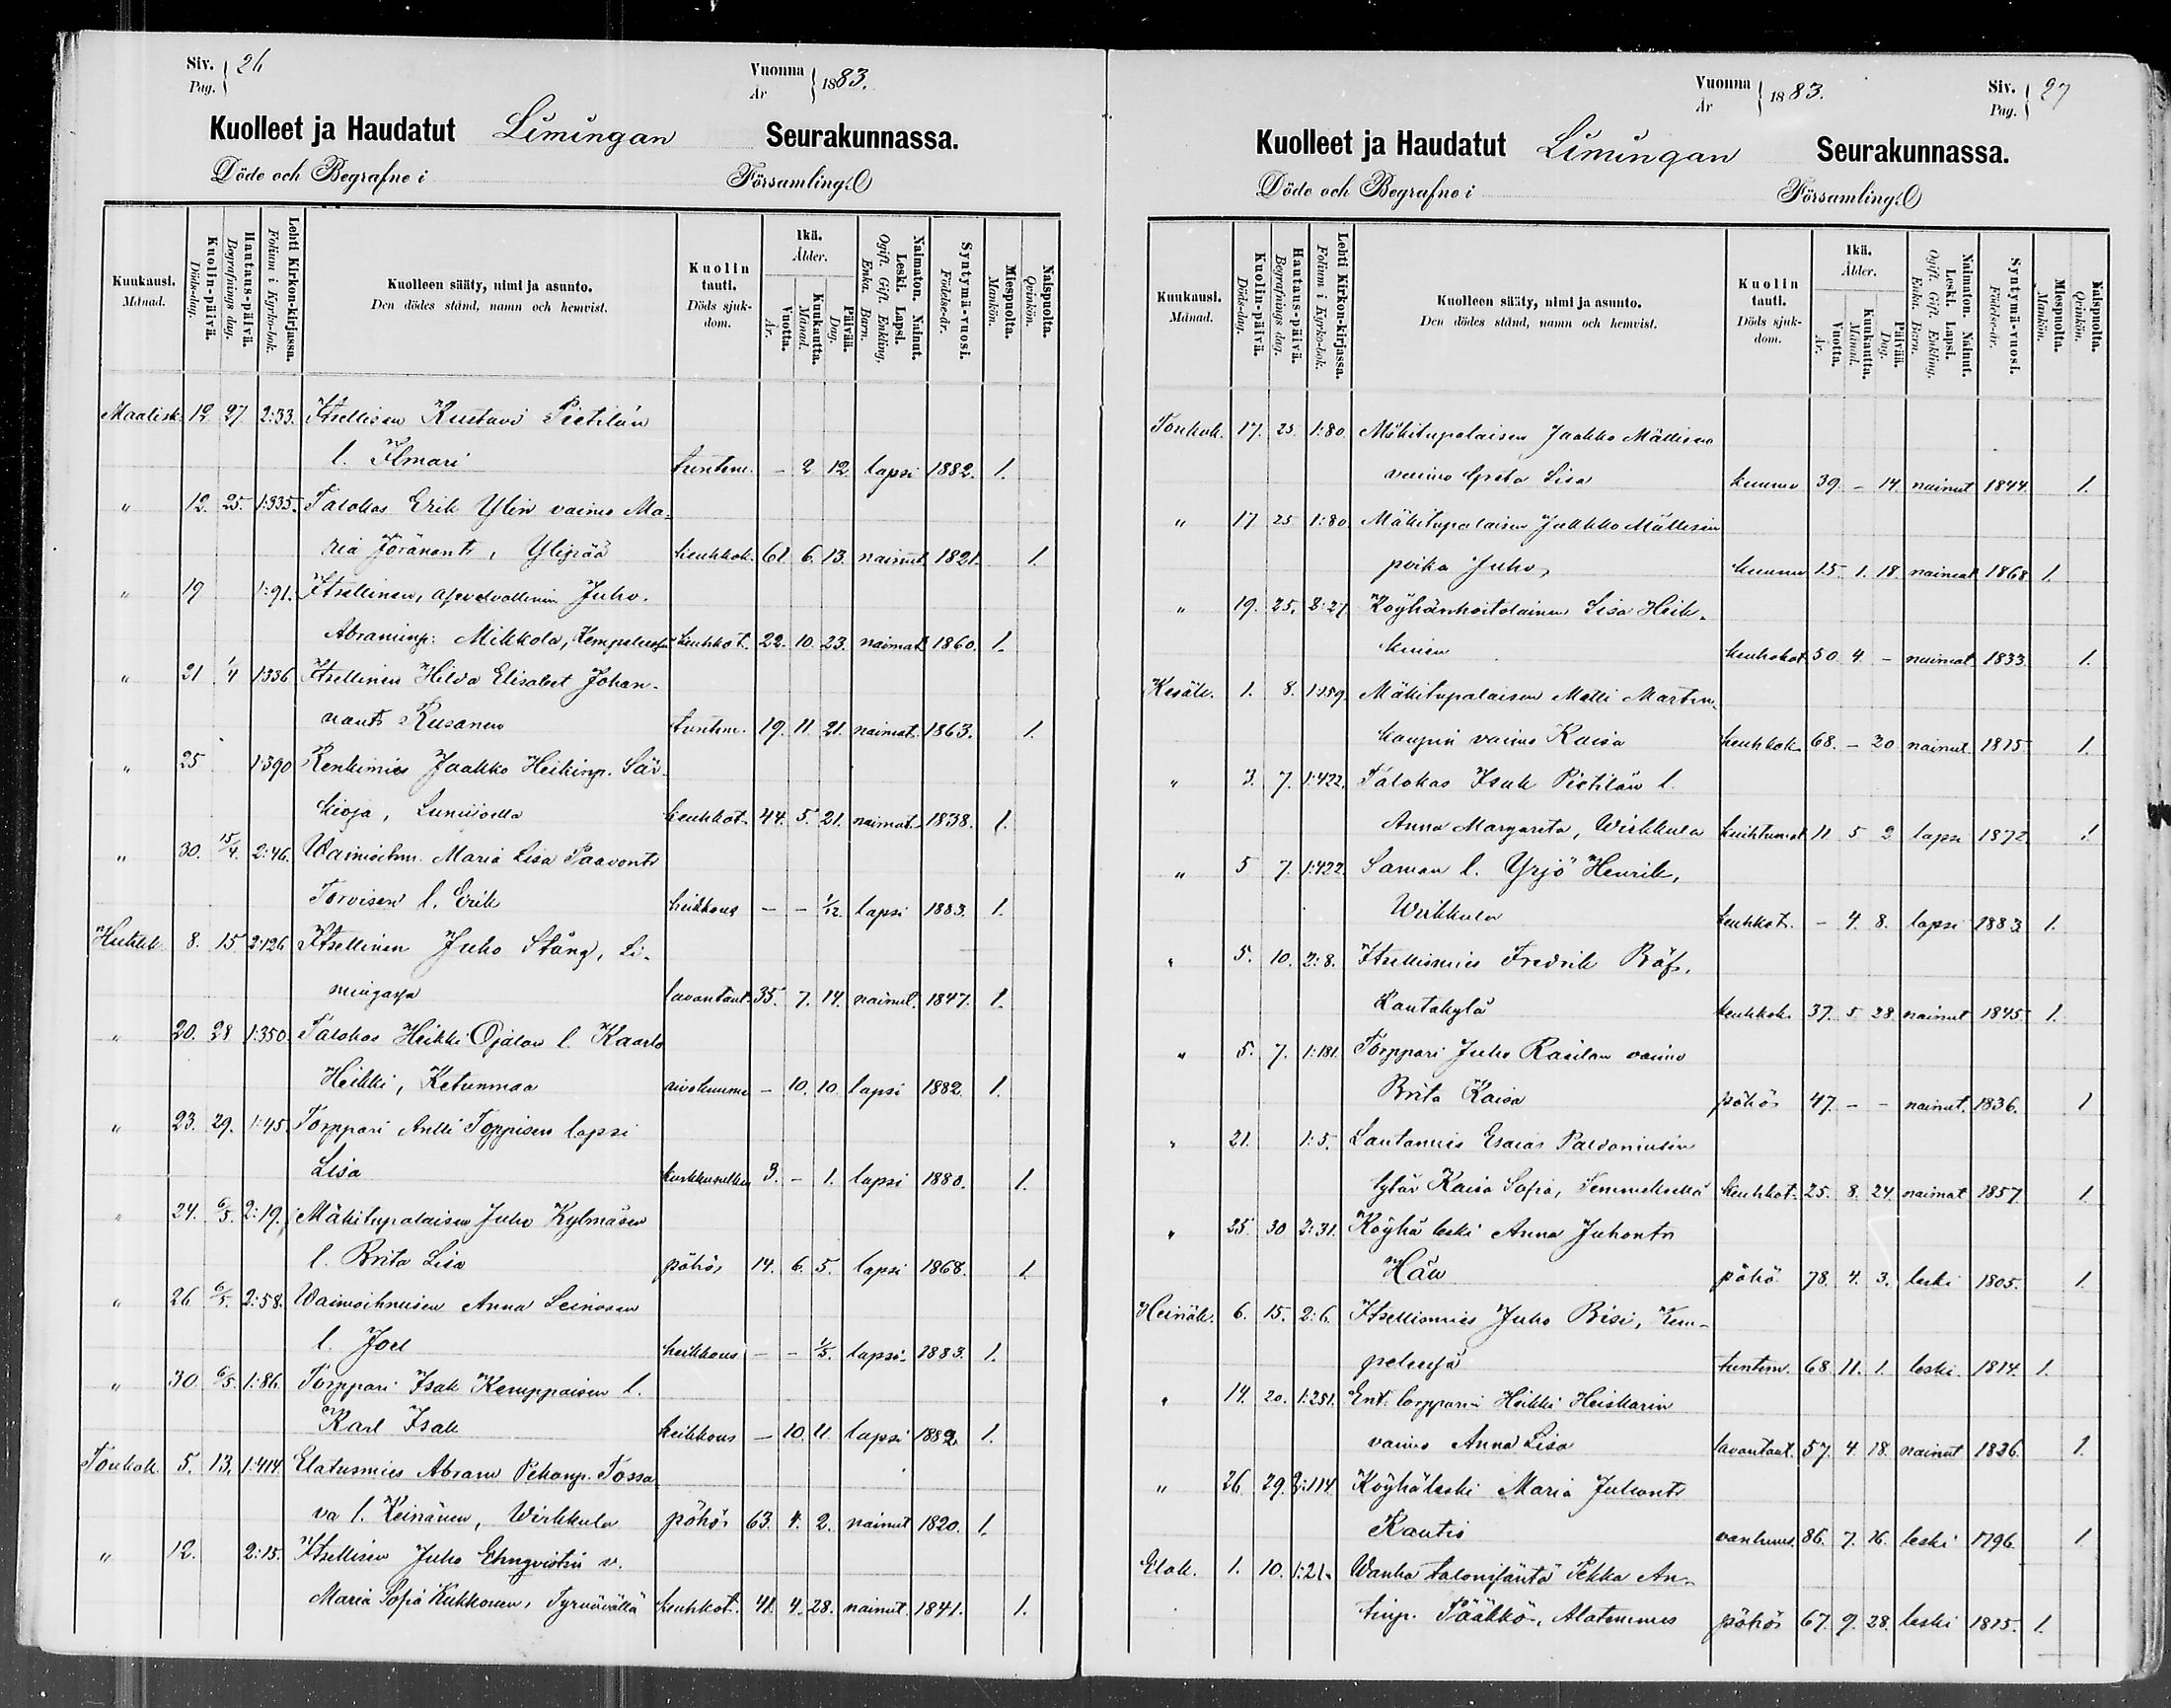 Siv. Pag. 26
Vuonna År 1883.
Kuolleet ja Haudatut Limingan Seurakunnassa.
Döde och Begrafne i Församling.
Kuukausi. Månad.
Kuolin-päivä. Döds-dag.
Hautaus-päivä. Begrafnings dag.
Lehti Kirkon-kirjassa. Folium i Kyrko-bok.
Kuolleen sääty, nimi ja asunto.
Den dödes stånd, namn och hemvist.
Kuolin tauti. Döds sjukdom.
Ikä. Ålder.
Vuotta. År.
Kuukautta. Månad.
Päivää. Dag.
Naimaton. Nainut. Leski. Lapsi. Ogift. Gift. Enkling. Enka. Barn.
Syntymä-vuosi. Födelse-år.
Miespuolta. Mankön.
Naispuolta. Qvinkön.
Maalisk. 12 27 2:33. Itsellisen Kustavi Pietilän
l. Ilmari tuntem. - 2 12 lapsi 1882. 1.
" 12. 25. 1:335. Talokas Erik Ylin vaimo Ma-
ria Jöranont., Ylipää keuhkok. 61. 6. 13. nainut. 1821. 1.
" 19 1:91. Itsellinen, Juho
Abraminp. Mikkola, keuhkot. 22. 10. 23. naimat 1860. 1.
" 21 1/4 1:336 Itsellinen Hilda Elisabet Johan-
nant. Rusanen tuntem. 19. 11 21. naimat. 1863. 1.
" 25 1:390 Renkimies Jaakko Heikinp. Sär-
kioja, Lumijoella keuhkot. 44. 5. 21. naimat. 1838. 1.
" 30. 15/4. 2:46. Waimoihm. Maria Lisa Paavont.
Torvisen l. Erik heikkous - - 1/12. lapsi 1883. 1.
Huhtik. 8. 15 2:126 Itsellinen Juho Stång, Li-
mingassa lavantaut. 35. 7. 14. nainut. 1847. 1.
" 20. 28 1:350. Talokas Heikki Ojalan l. Kaarlo
Heikki, Ketunmaa aivokuume - 10. 10 lapsi 1882. 1.
" 23. 29. 1:45. Torppari Antti Toppisen lapsi
Lisa 3. - 1. lapsi 1880. 1.
" 24. 6/5. 2:19. Mäkitupalaisen Juho Kylmäsen
l. Brita Lisa pöhös 14. 6. 5. lapsi 1868. 1.
" 26 6/5. 2:58. Waimoihmisen Anna Leinosen
l. Joel heikkous - - 1/5. lapsi. 1883. 1.
" 30. 6/5. 1:86. Torppari Isak Kemppaisen l.
Karl Isak heikkous - 10. 11. lapsi 1882. 1.
Toukok. 5. 13. 1:414. Elatusmies Abram Pekanp. Tossa-
va l. Keinänen, Wirkkula pöhös 63. 4. 2. nainut 1820. 1.
" 12. 2:15. Itsellisen Juho Ehnqvistin v.
Maria Sofia Kukkonen, Tyrnävällä keuhkot. 41. 4. 28. nainut. 1841. 1.
Vuonna År 1883.
Siv. Pag. 27
Kuolleet ja Haudatut Limingan Seurakunnassa.
Döde och Begrafne i Församling.
Kuukausi. Månad.
Kuolin-päivä. Döds-dag.
Hautaus-päivä. Begrafnings dag.
Lehti Kirkon-kirjassa. Folium i Kyrko-bok.
Kuolleen sääty, nimi ja asunto.
Den dödes stånd, namn och hemvist.
Kuolin tauti. Döds sjukdom.
Ikä. Ålder.
Vuotta. År.
Kuukautta. Månad.
Päivää. Dag.
Naimaton. Nainut. Leski. Lapsi. Ogift. Gift. Enkling. Enka. Barn.
Syntymä-vuosi. Födelse-år.
Miespuolta. Mankön.
Naispuolta. Qvinkön.
Toukok. 17. 25. 1:80. Mäkitupalaisen Jaakko Mällisen
vaimo Greta Lisa kuume 39. - 14. nainut 1844. 1.
" 17 25 1:80. Mäkitupalaisen Jaakko Mällisen
poika Juho, kuume 15. 1. 18. naimat 1868. 1.
" 19. 25. 2:27. Köyhänhoitolainen Lisa Heik-
kinen keuhkot. 50. 4. - naimat 1833. 1.
Kesäk. 1. 8. 1:159. Mäkitupalaisen Matti Martin-
kaupin vaimo Kaisa keuhkok. 68. - 20 nainut 1815. 1.
" 3. 7. 1:422. Talokas Isak Pietilän l.
Anna Margareta, Wirkkula 11 5 2 lapsi 1872. 1.
" 5 7. 1:422. Saman l. Yrjö Henrik,
Wirkkula keuhkot. - 4. 8. lapsi 1883 1.
" 5. 10. 2:8. Itsellismies Fredrik Räf,
Rantakylä keuhkok. 37. 5 28 nainut 1845. 1.
" 5. 7. 1:181. Torppari Juho Rasilan vaimo
Brita Kaisa pöhös 47. - - nainut. 1836. 1
" 21. 1:5. Lautamies Esaias Paldaniuksen
tytär Kaisa Sofia, Temmeksellä keuhkot. 25. 8. 24. naimat 1857. 1.
" 25 30 2:31. Köyhä leski Anna Juhont.
Häw pöhö 78. 4. 3. leski 1805. 1.
Heinäk. 6. 15. 2:6. Itsellismies Juho Bisi, Kem-
peleessä tuntem. 68. 11. 1. leski 1814. 1.
" 14. 20. 1:251. Ent. torpparin Heikki Heiskarin
vaimo Anna Lisa lavantaut. 57. 4. 18. nainut 1826. 1.
" 26 29. 2:114 Köyhäleski Maria Juhont.
Rautio vanhuus. 86. 7. 16. leski 1796. 1
Elok. 1. 10. 1:21. Wanha talonisäntä Pekka An-
tinp. Pääkkö, Alatemmes pöhös 67. 9. 28. leski 1815. 1.